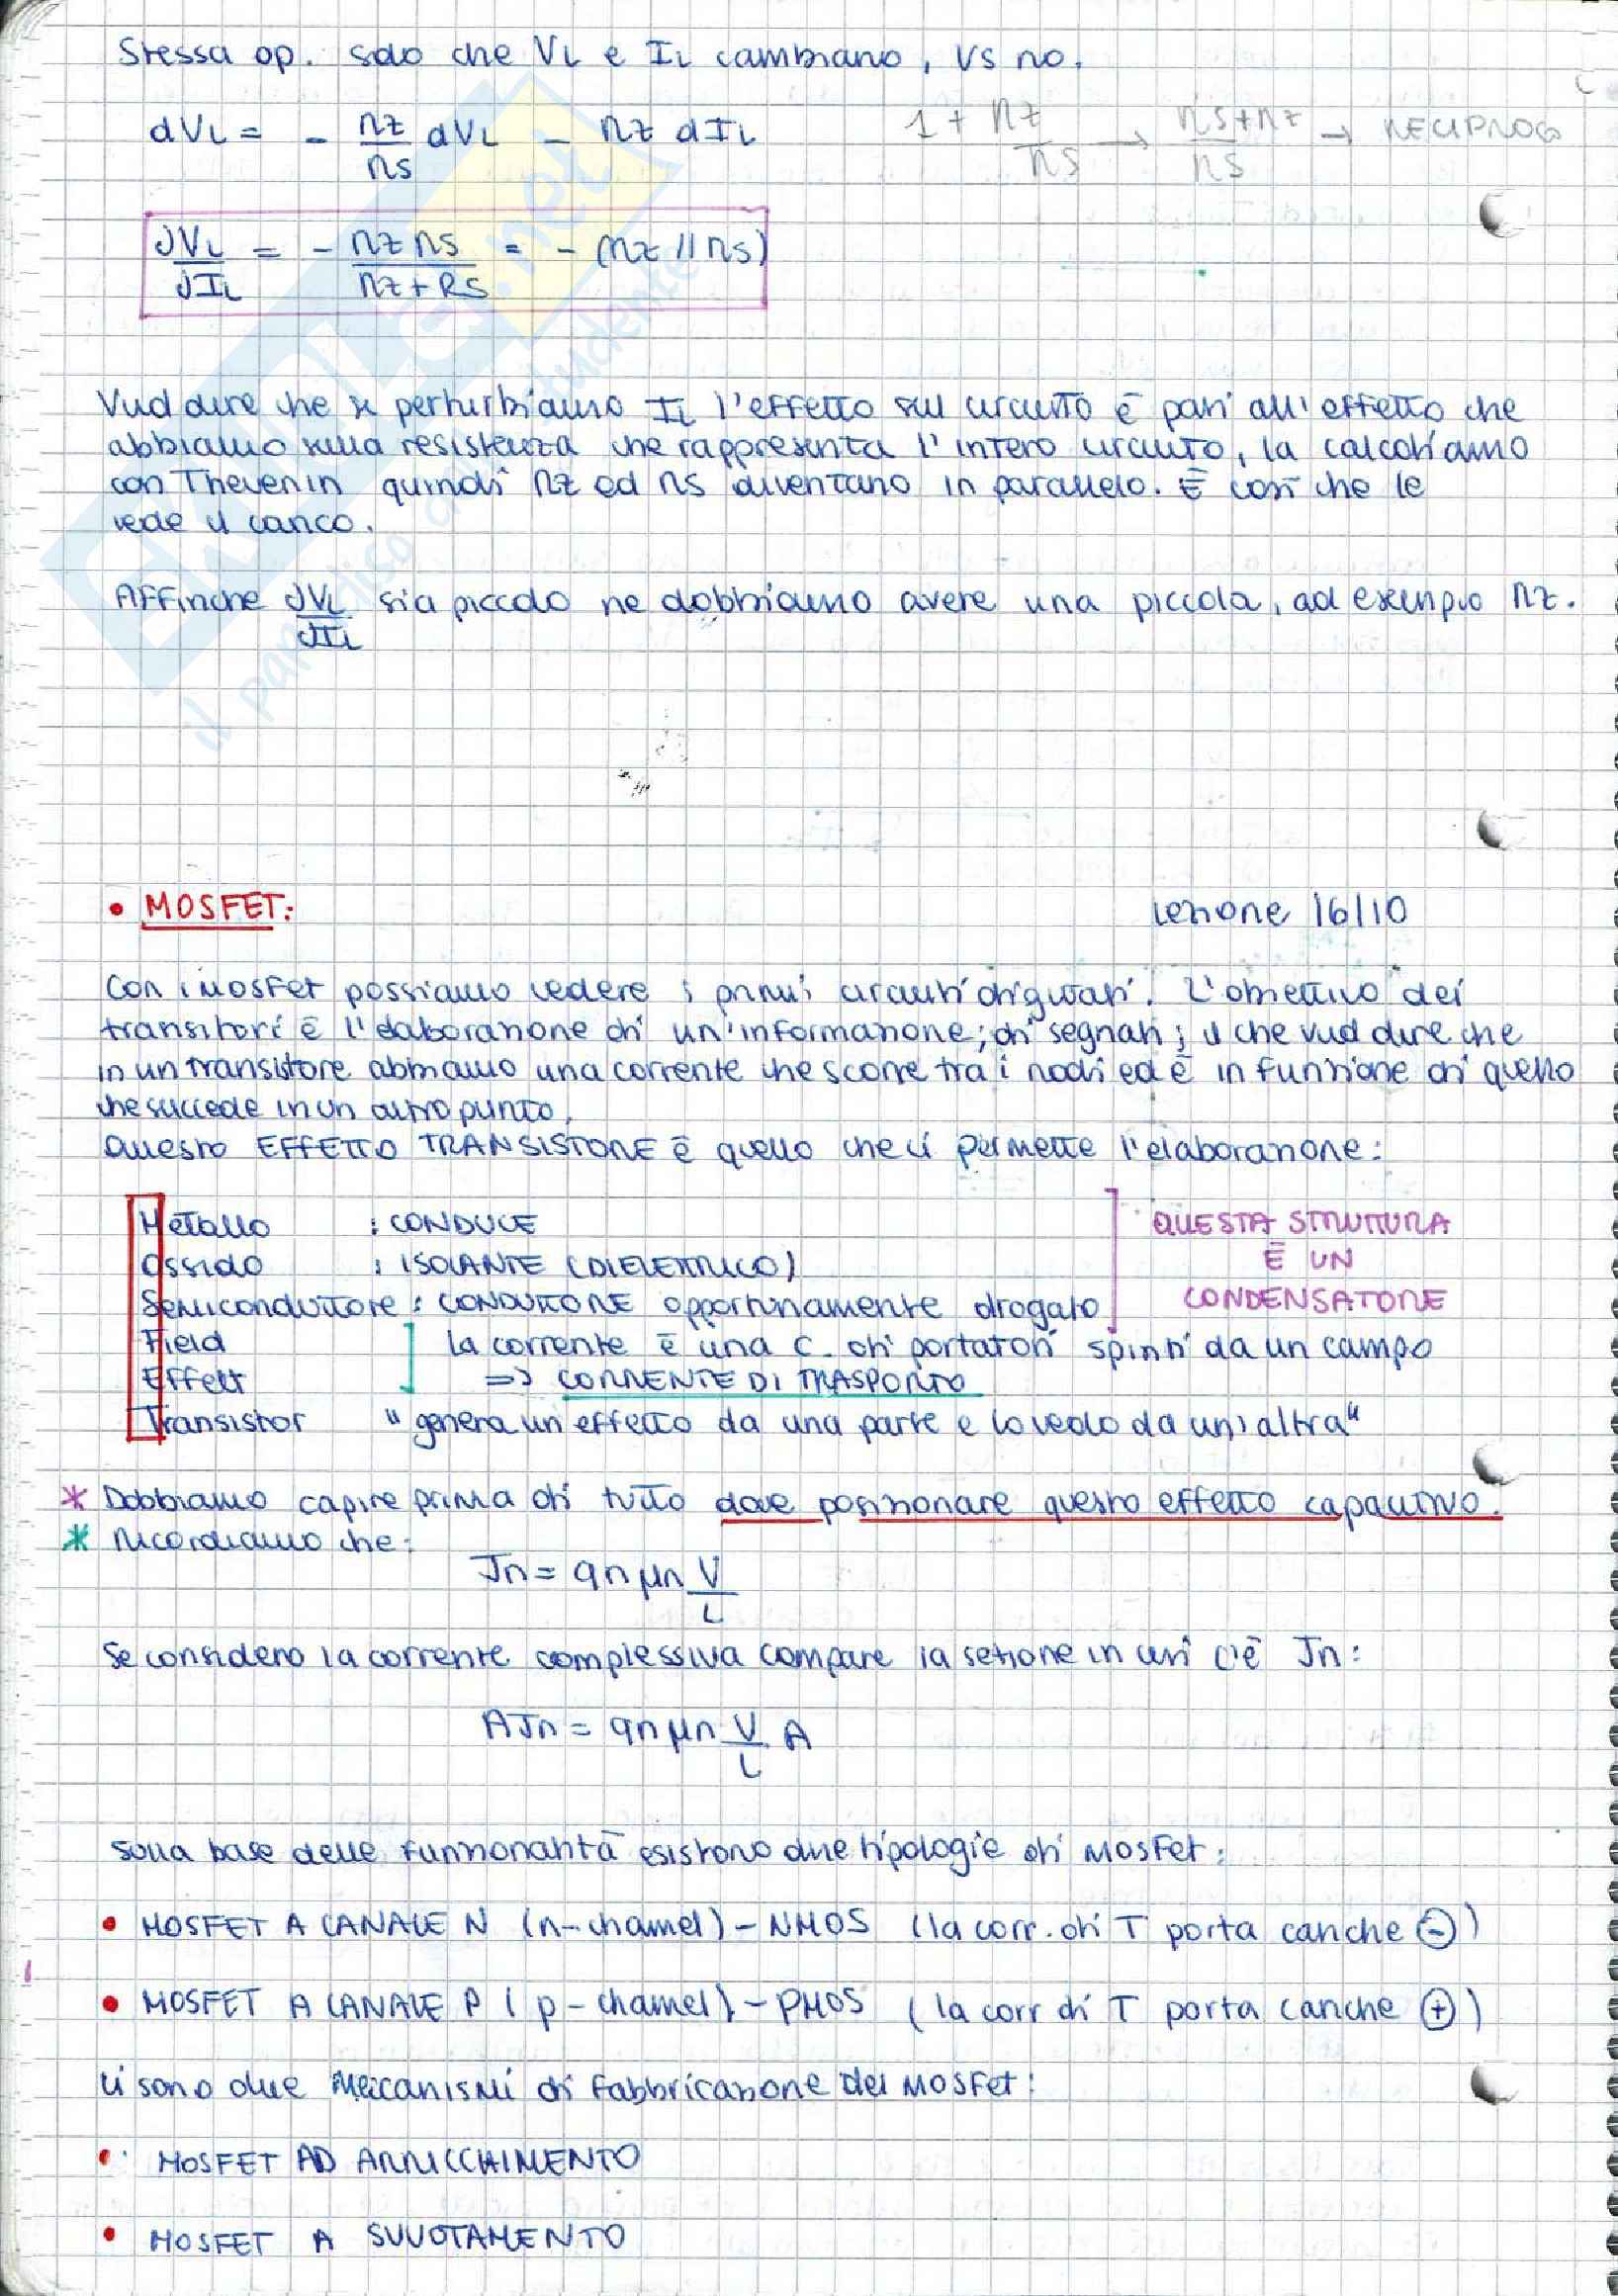 Stessa op. solo che VL e IL cambiano, VS no.
dVL = - rz/rs dVL - rz dIL    1 + rz/rs → rs+rz/rs → RECIPROCO
dVL/dIL = - rz rs/rz+Rs = - (rz // rs)
Vuol dire che se perturbiamo IL l'effetto sul circuito è pari all'effetto che
abbiamo sulla resistenza che rappresenta l'intero circuito, la calcoliamo
con Thevenin quindi rz ed rs diventano in parallelo. È così che le
vede il carico.
Affinche dVL/dIL sia piccolo ne dobbiamo avere una piccola, ad esempio rz.
• MOSFET:    Lezione 16/10
Con i Mosfet possiamo vedere i primi circuiti digitali. L'obiettivo dei
transitori è l'elaborazione di un'informazione, di segnali; il che vuol dire che
in un transistore abbiamo una corrente che scorre tra i nodi ed è in funzione di quello
che succede in un altro punto.
Questo EFFETTO TRANSISTORE è quello che ci permette l'elaborazione:
Metallo : CONDUCE    QUESTA STRUTTURA
Ossido : ISOLANTE (DIELETTRICO)    È UN
Semiconduttore : CONDUTTORE opportunamente drogato    CONDENSATORE
Field    la corrente è una c. di portatori spinti da un campo
Effect    => CORRENTE DI TRASPORTO
Transistor    "genera un effetto da una parte e lo vedo da un'altra"
* Dobbiamo capire prima di tutto dove posizionare questo effetto capacitivo.
* Ricordiamo che:
Jn = qnμn V/L
Se considero la corrente complessiva compare la sezione in cui c'è Jn:
AJn = qnμn V/L A
Sulla base delle funzionalità esistono due tipologie di Mosfet:
• MOSFET A CANALE N (n-channel) - NMOS (la corr. di T porta cariche ⊖)
• MOSFET A CANALE P (p-channel) - PMOS (la corr di T porta cariche ⊕)
Ci sono due meccanismi di fabbricazione dei Mosfet:
• MOSFET AD ARRICCHIMENTO
• MOSFET A SVUOTAMENTO